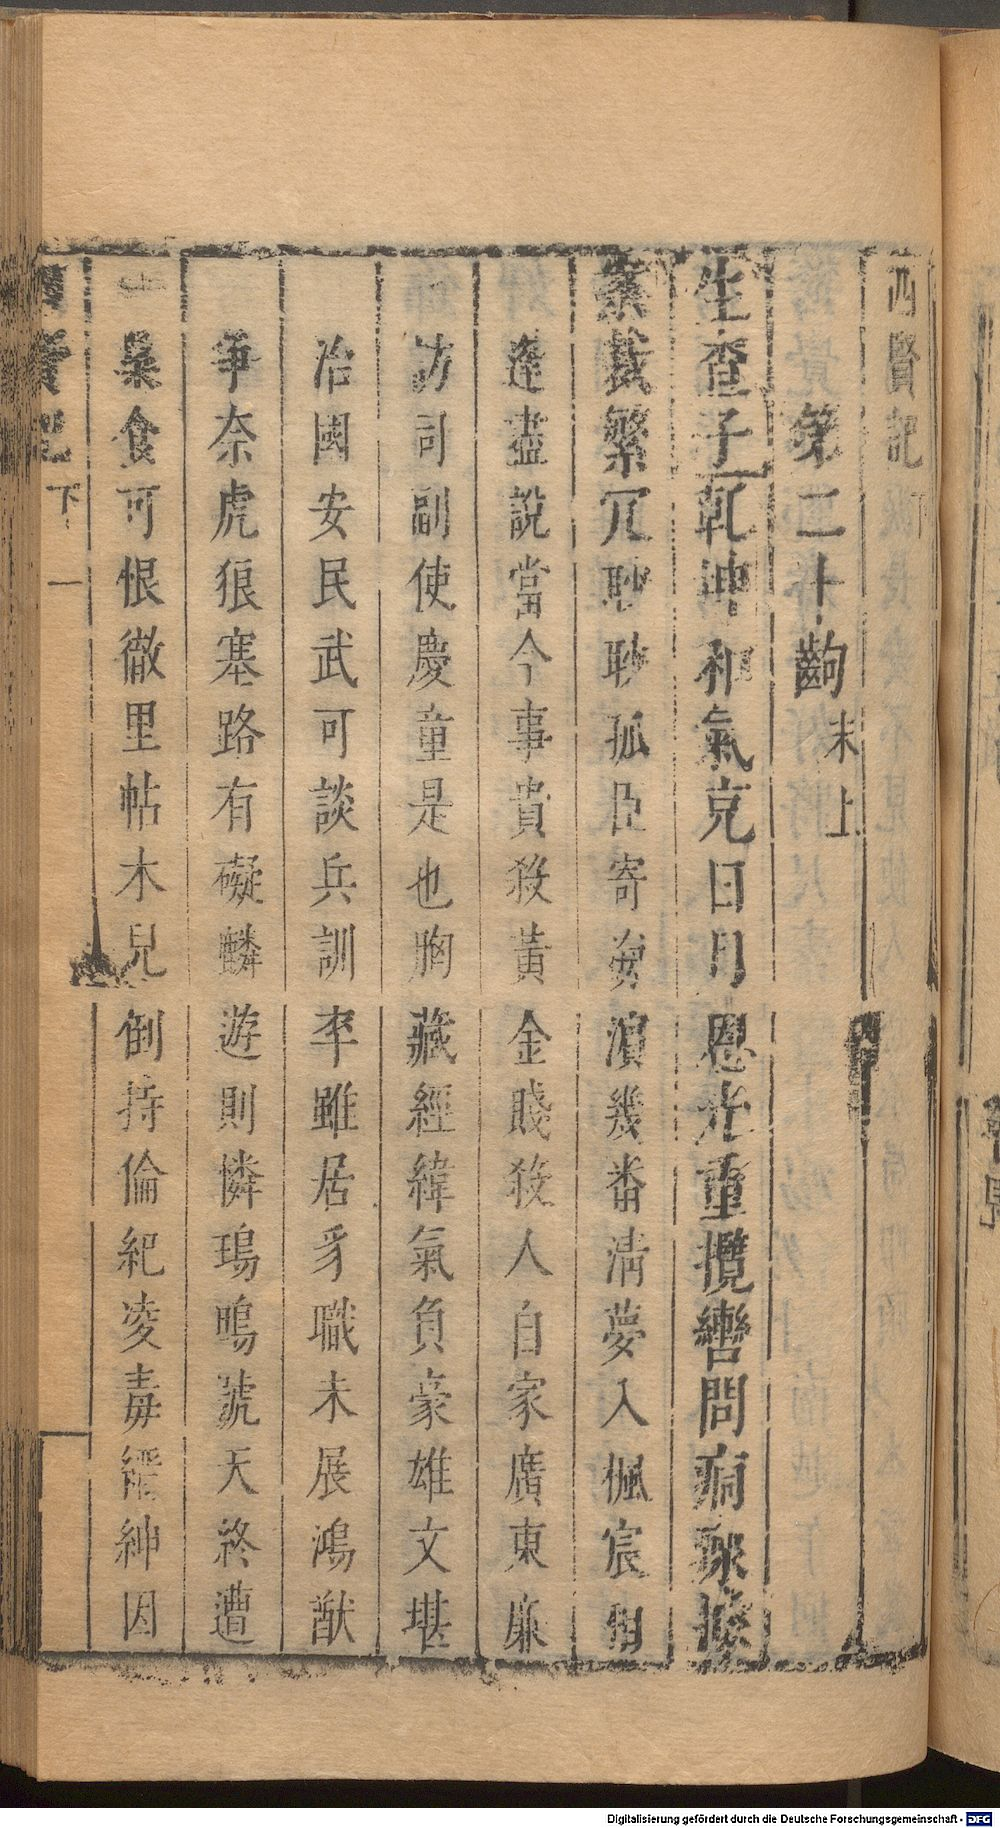 四賢記 下
第二十齣 末上
生查子乾坤和氣克日月恩光重攬轡問痌瘝擬
業裁繁冗眇眇孤臣寄海濵幾番清夢入楓宸相
逢盡說當今事貴殺黃金賤殺人自家廣東廉
訪司副使慶童是也胸藏經緯氣負豪雄文堪
治國安民武可談兵訓卒雖居豸職未展鴻猷
爭奈虎狼塞路有礙麟遊則憐鴞鳴號天終遭
梟食可恨徹里帖木兒倒持倫紀凌毒縉紳因
下 一
Digitalisierung gefördert durch die Deutsche Forschungsgemeinschaft - DFG